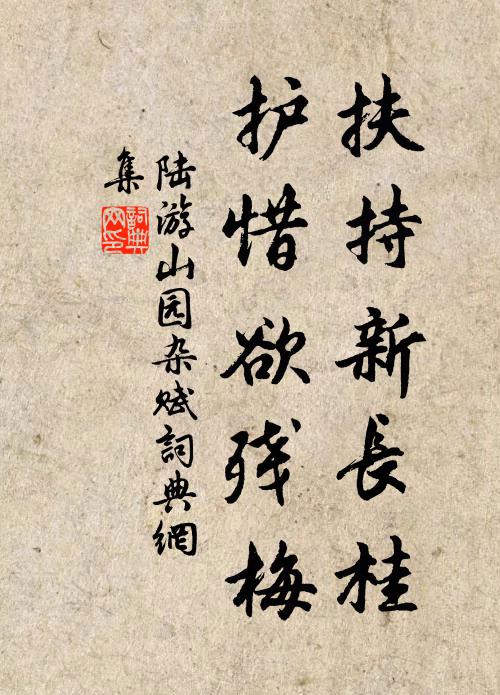 扶持新長桂
护惜欲残梅
陆游山园杂赋詞典網
集
詞典网印